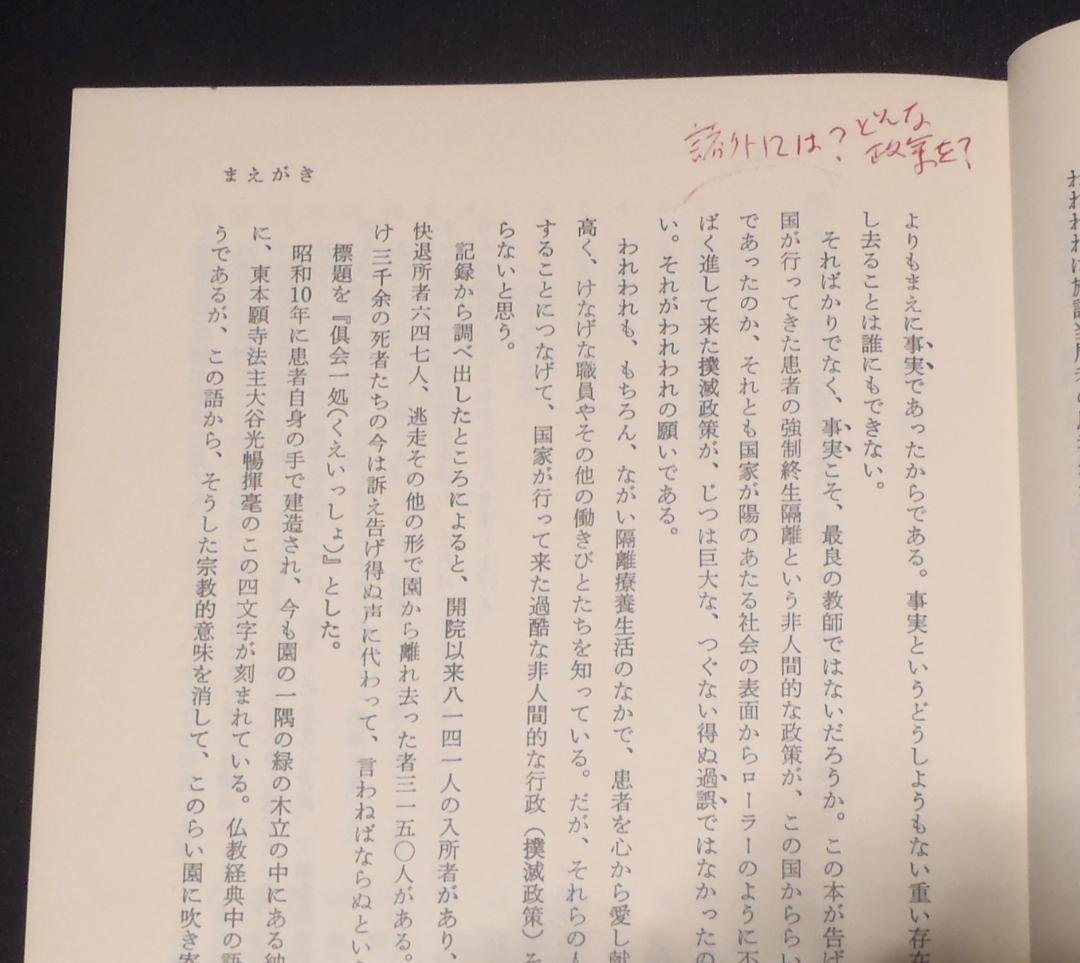 諸外には?どんな
政策を?
まえがき
よりもまえに事実であったからである。事実というどうしようもない重い存在
し去ることは誰にもできない。
そればかりでなく、事実こそ、最良の教師ではないだろうか。この本が告げ
国が行ってきた患者の強制終生隔離という非人間的な政策が、この国かららい
であったのか、それとも国家が陽のあたる社会の表面からローラーのように不
ばく進して来た撲滅政策が、じつは巨大な、つぐない得ぬ過誤ではなかったの
い。それがわれわれの願いである。
われわれも、もちろん、ながい隔離療養生活のなかで、患者を心から愛し献
高く、けなげな職員やその他の働きびとたちを知っている。だが、それらの人
することにつなげて、国家が行って来た過酷な非人間的な行政(撲滅政策)そ
らないと思う。
記録から調べ出したところによると、開院以来八一四一人の入所者があり、
快退所者六四七人、逃走その他の形で園から離れ去った者三一五〇人がある。
け三千余の死者たちの今は訴え告げ得ぬ声に代わって、言わねばならぬとい
標題を『倶会一処(くえいっしょ)』とした。
昭和10年に患者自身の手で建造され、今も園の一隅の緑の木立の中にある納
に、東本願寺法主大谷光暢揮毫のこの四文字が刻まれている。仏教経典中の語
うであるが、この語から、そうした宗教的意味を消して、このらい園に吹き寄